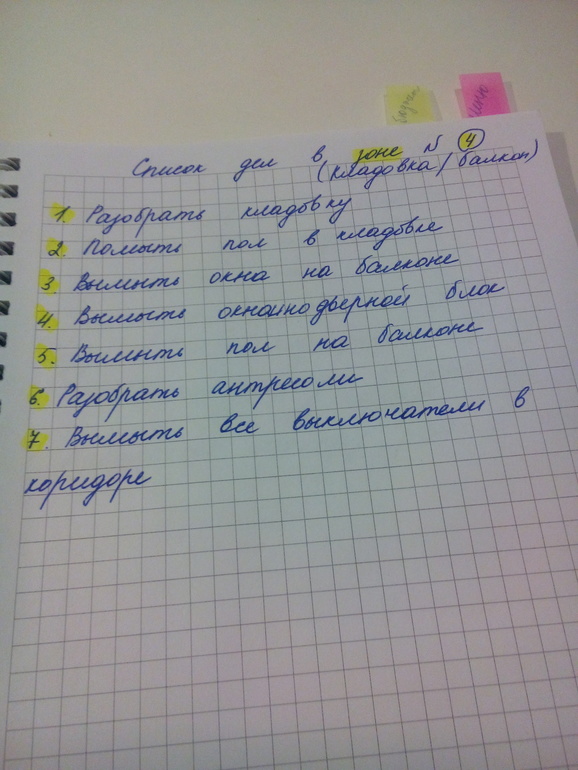 Список дел в зоне N 4
(кладовка/балкон)
1. Разобрать кладовку
2. Помыть пол в кладовке
3. Вымыть окна на балконе
4. Вымыть оконно дверной блок
5. Вымыть пол на балконе
6. Разобрать антресоли
7. Вымыть все выключатели в
коридоре